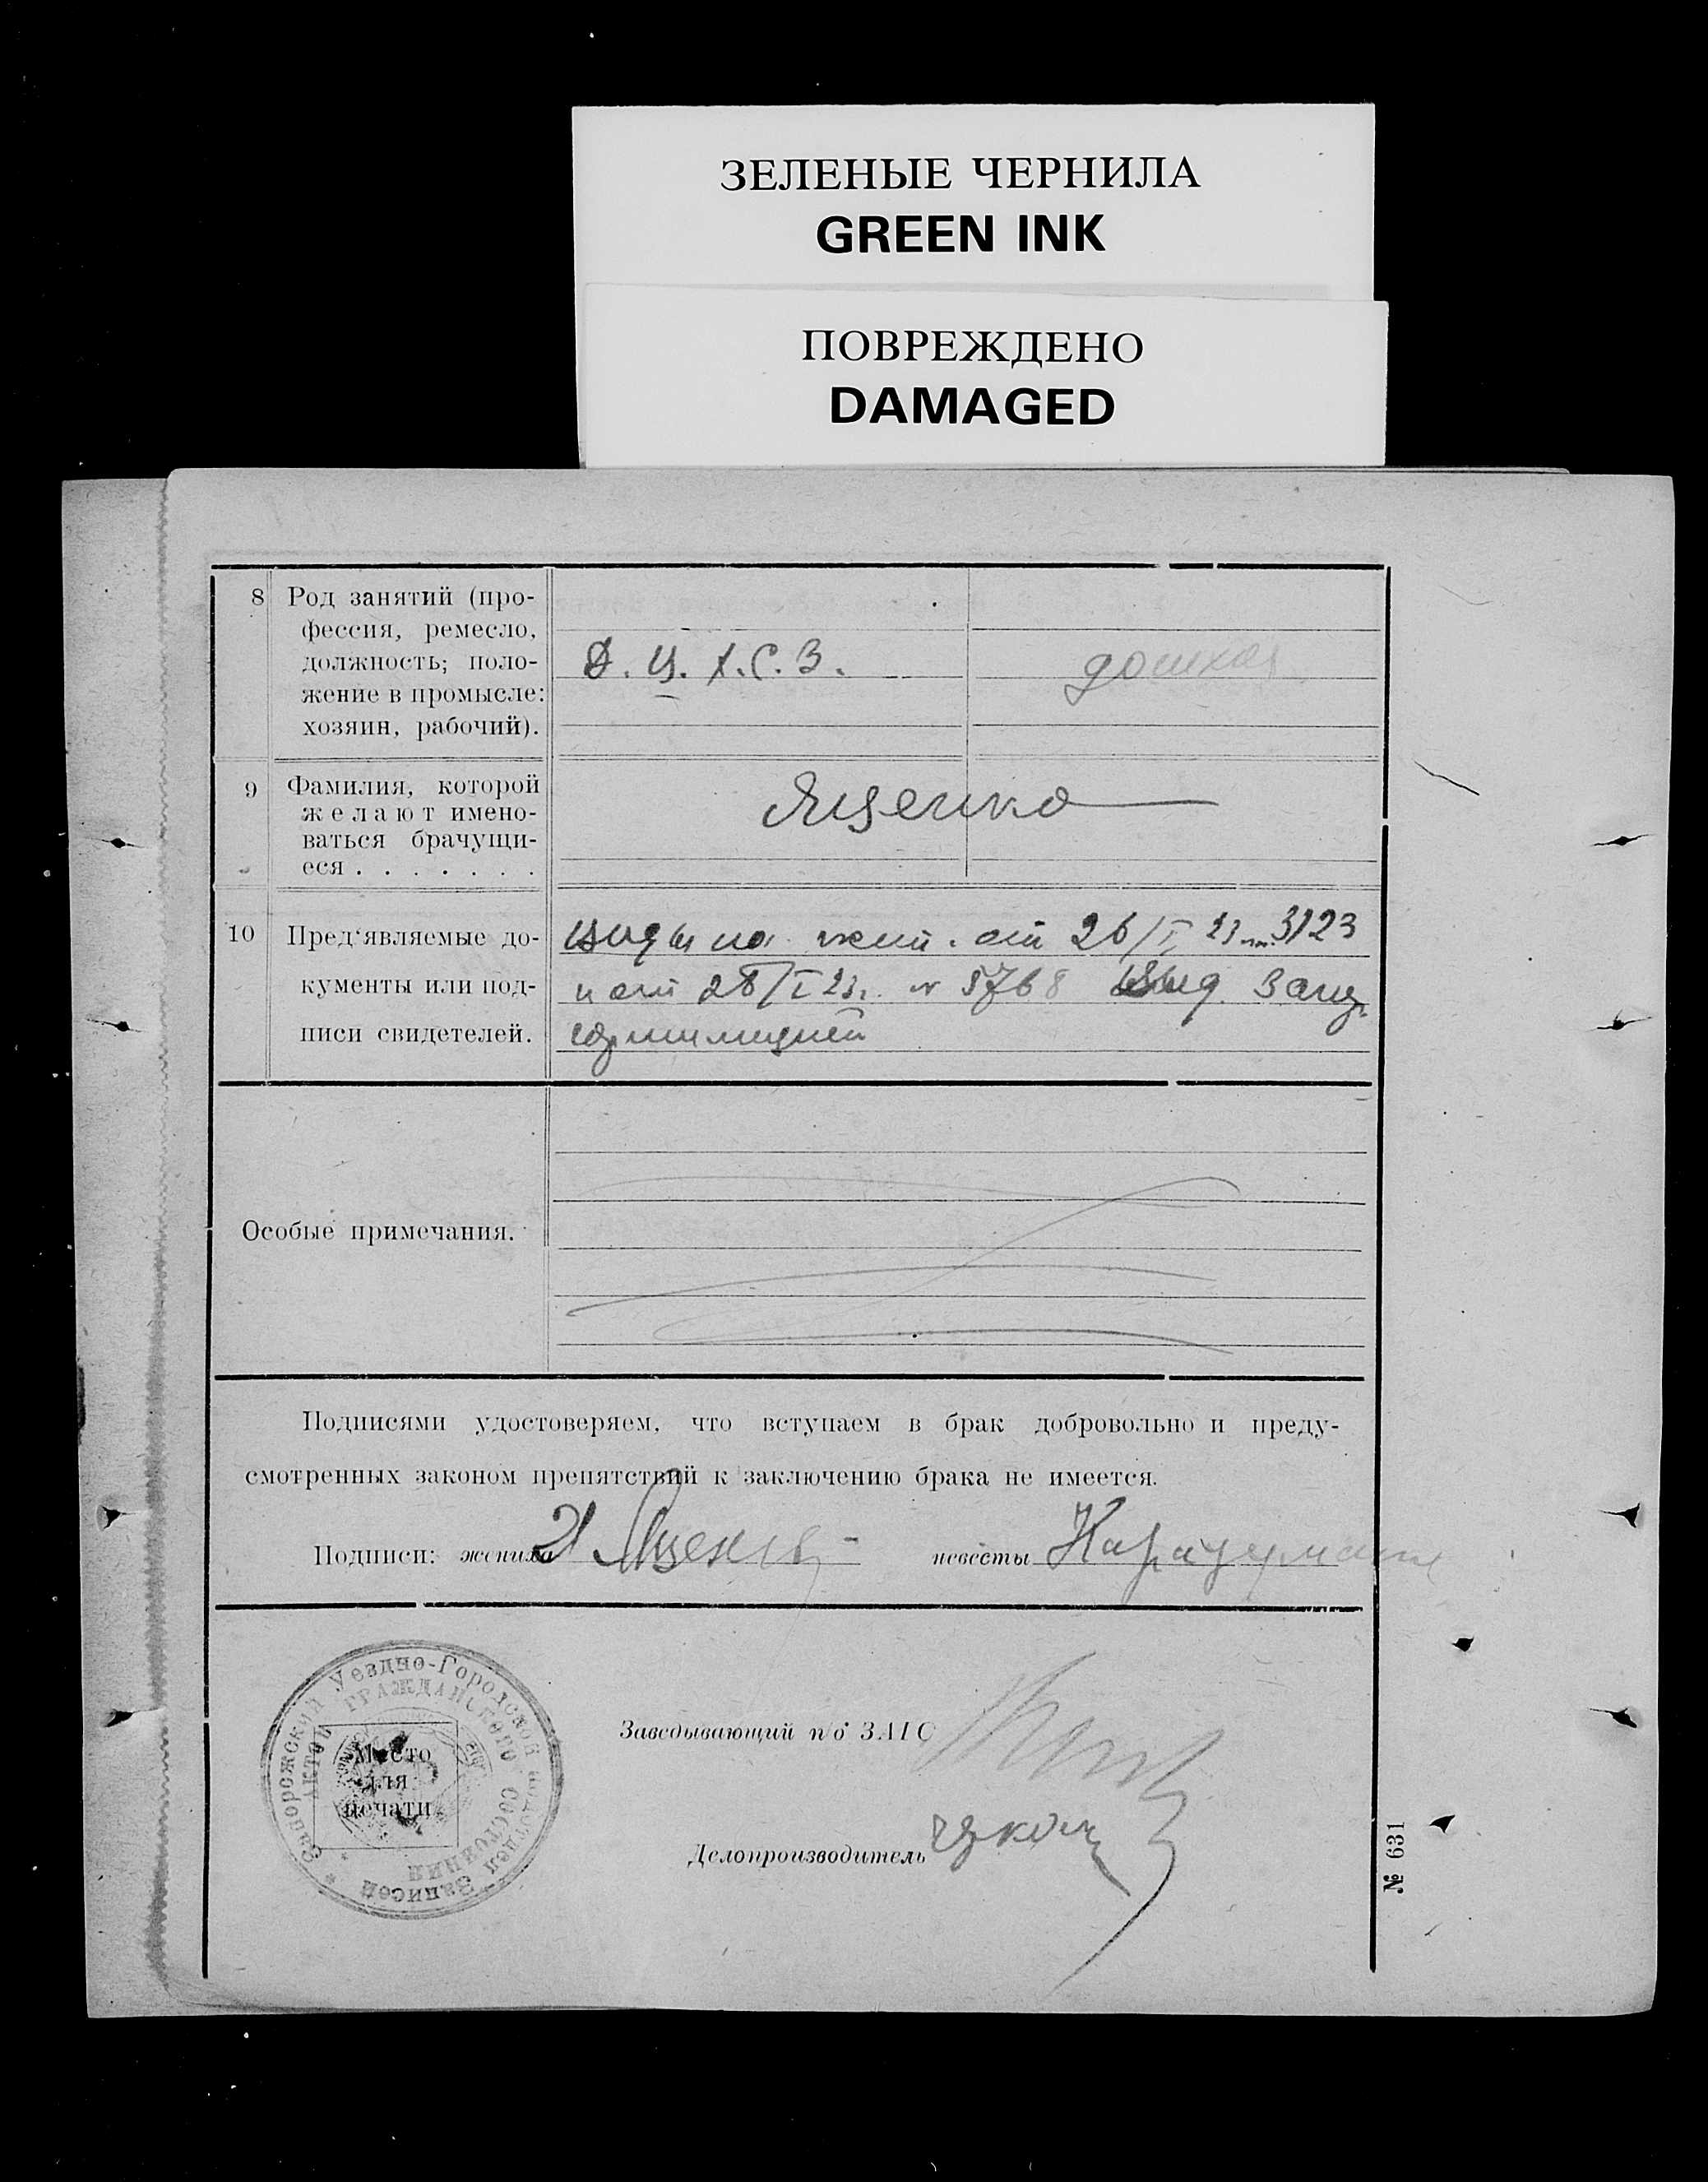 ЗЕЛЕНЫЕ ЧЕРНИЛА
GREEN INK
ПОВРЕЖДЕНО
DAMAGED
8 Род занятий (про-
фессия, ремесло,
должность; поло-
жение в промысле:
хозяин, рабочий).
Х.С.З.
9 Фамилия, которой
желают имено-
ваться брачущи-
еся . . . . . . .
Ященко
10 Пред'являемые до-
кументы или под-
писи свидетелей.
виды на жит. от 26/I 23 3123
и от 28/I 23г. № 5768 выд. Запор.
гормилицией
Особые примечания.
Подписями удостоверяем, что вступаем в брак добровольно и преду-
смотренных законом препятствий к заключению брака не имеется.
Подписи: жениха Ященко невесты
Запорожский Уездно-Городской подотдел Записей
АКТОВ ГРАЖДАНСКОГО СОСТОЯНИЯ
Место
для
печати
Заведывающий п/о ЗАГС
Делопроизводитель
№ 631